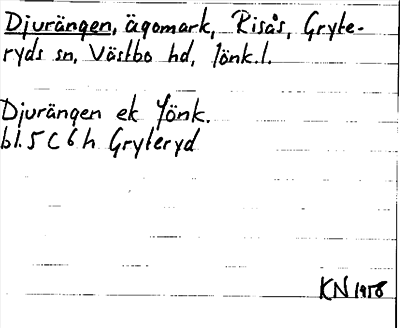 Djurängen, ägomark, Risås, Gryte-
ryds sn, Västbo hd, Jönk.l.
Djurängen ek Jönk.
bl. 5 C 6 h Gryteryd
KN 1958